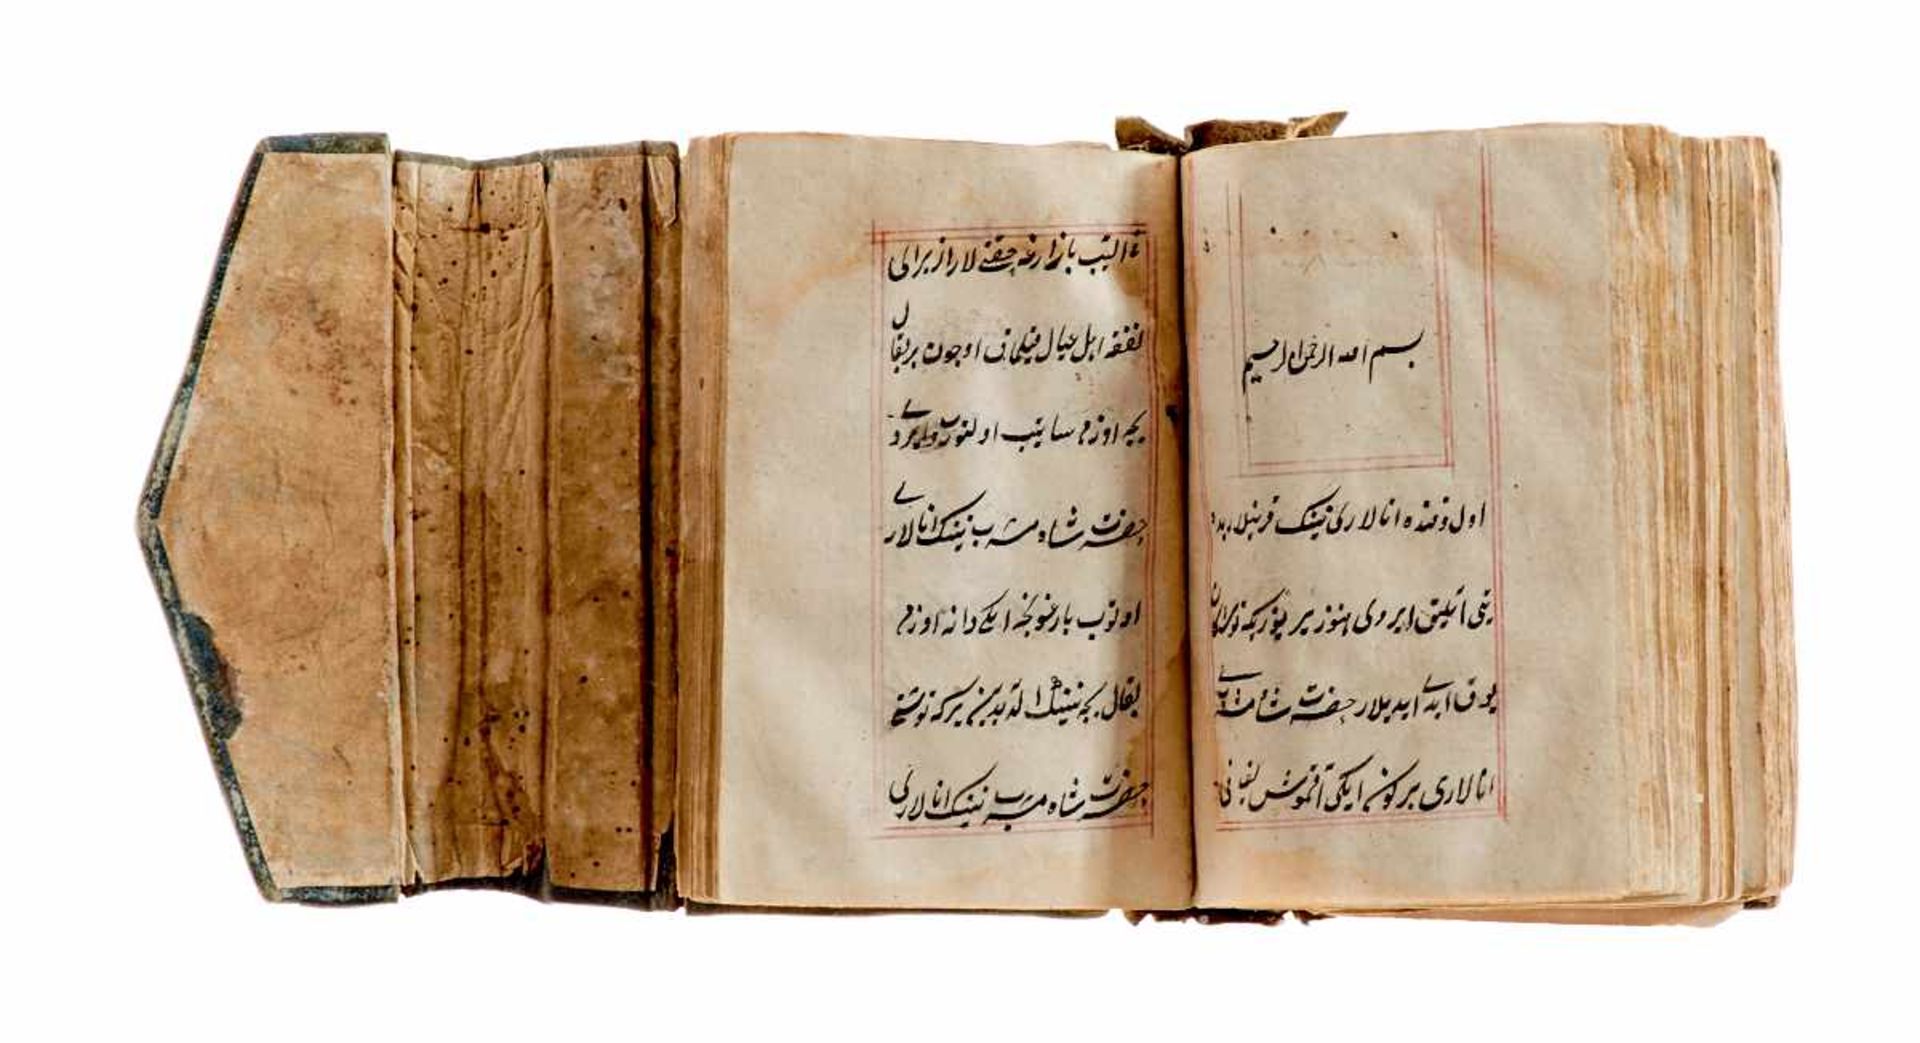 بسم الله الرحمن الرحیم
اول وقتده انالاری نینک قرنیلاریده
یتی ایلیق ایردی هنوز بر یوزیکه توراوان
یوق ایدی ایدیلار حضرت شاه مشرب
انالاری بر کون ایکی قموش یفانی
الیب بازارغه چقتی لار از برای
نفقه اهل عیال قیلمانی اوچون بر بقال
بچه اوزم ساتیب اولتوروب ایردی
حضرت شاه مشرب نینک انالاری
اوتوب بارغونجه ایکی دانه اوزم
بقال بچه نینک الدیدین یرکه توشتی
حضرت شاه مشرب نینک انالاری